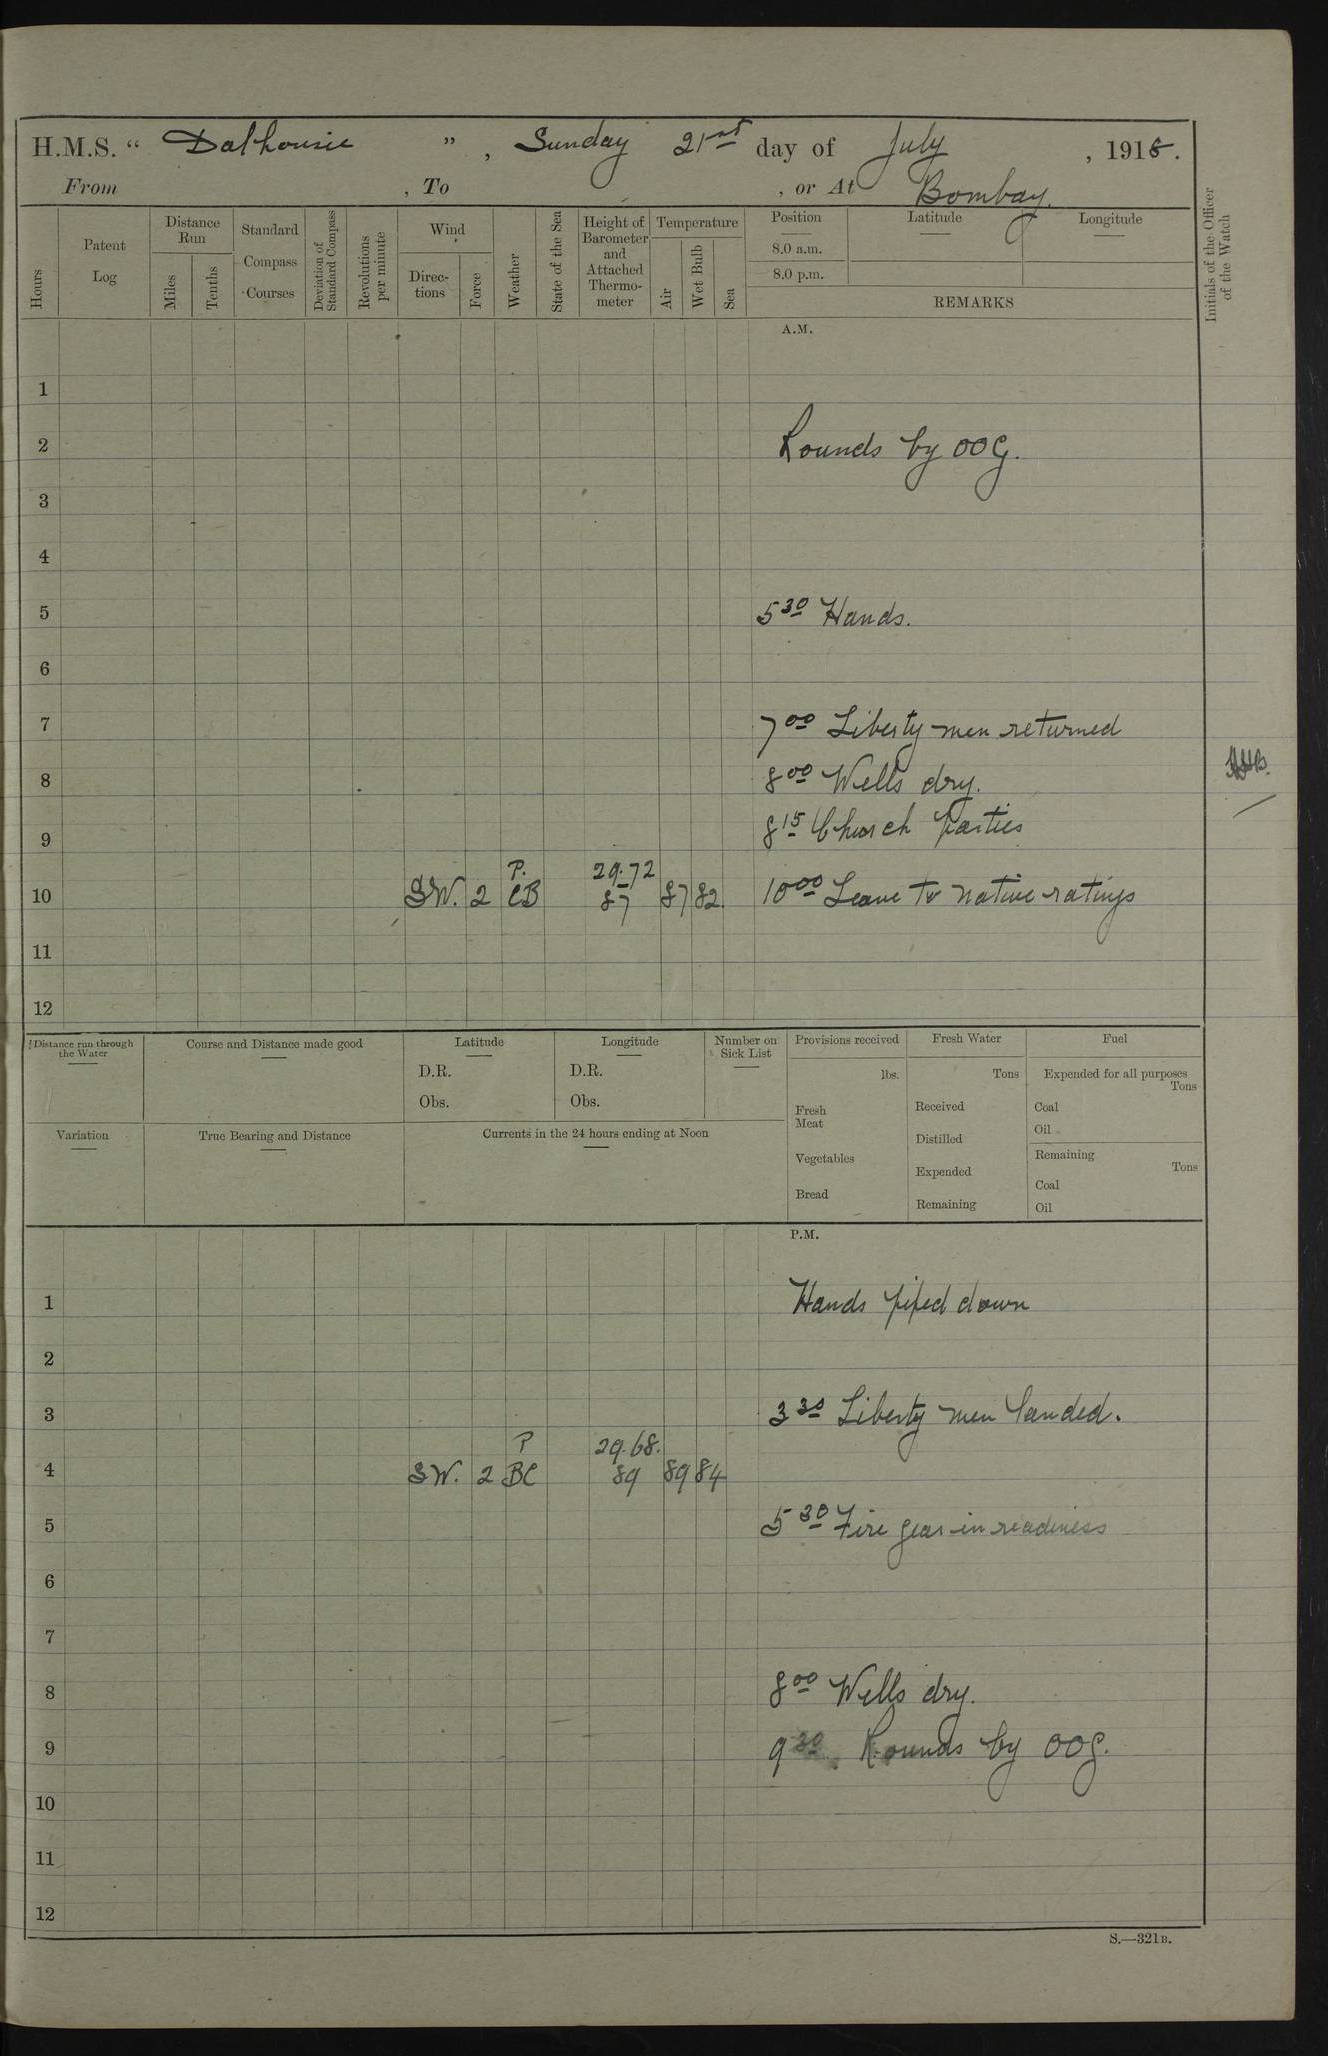 H.M.S. “ Dalhousie ” , Sunday 21st day of July , 1918.
From , To , or At Bombay.
Hours
Patent Log
Distance Run
Miles
Tenths
Standard Compass Courses
Deviation of Standard Compass
Revolutions per minute
Wind
Directions
Force
Weather
State of the Sea
Height of Barometer and Attached Thermometer
Temperature
Air
Wet Bulb
Sea
Position
8.0 a.m.
8.0 p.m.
Latitude
Longitude
REMARKS
Initials of the Officer of the Watch
A.M.
1
2 Rounds by OOG.
3
4
5 5 30 Hands.
6
7 7 00 Liberty men returned
8 8 00 Wells dry.
9 8 15 Church Parties
P. 29.72
10 SW. 2 CB 87 87 82. 10 00 Leave to native ratings
11
12
Distance run through the Water
Course and Distance made good
Latitude
D.R.
Obs.
Longitude
D.R.
Obs.
Number on Sick List
Variation
True Bearing and Distance
Currents in the 24 hours ending at Noon
Provisions received
lbs.
Fresh Meat
Vegetables
Bread
Fresh Water
Tons
Received
Distilled
Expended
Remaining
Fuel
Expended for all purposes
Tons
Coal
Oil
Remaining
Tons
Coal
Oil
P.M.
1 Hands piped down
2
3 3 30 Liberty men landed.
P 29.68.
4 SW. 2 BC 89 89 84
5 5 30 Fire gear in readiness
6
7
8 8 00 Wells dry.
9 9 30 Rounds by OOG.
10
11
12
S.—321B.